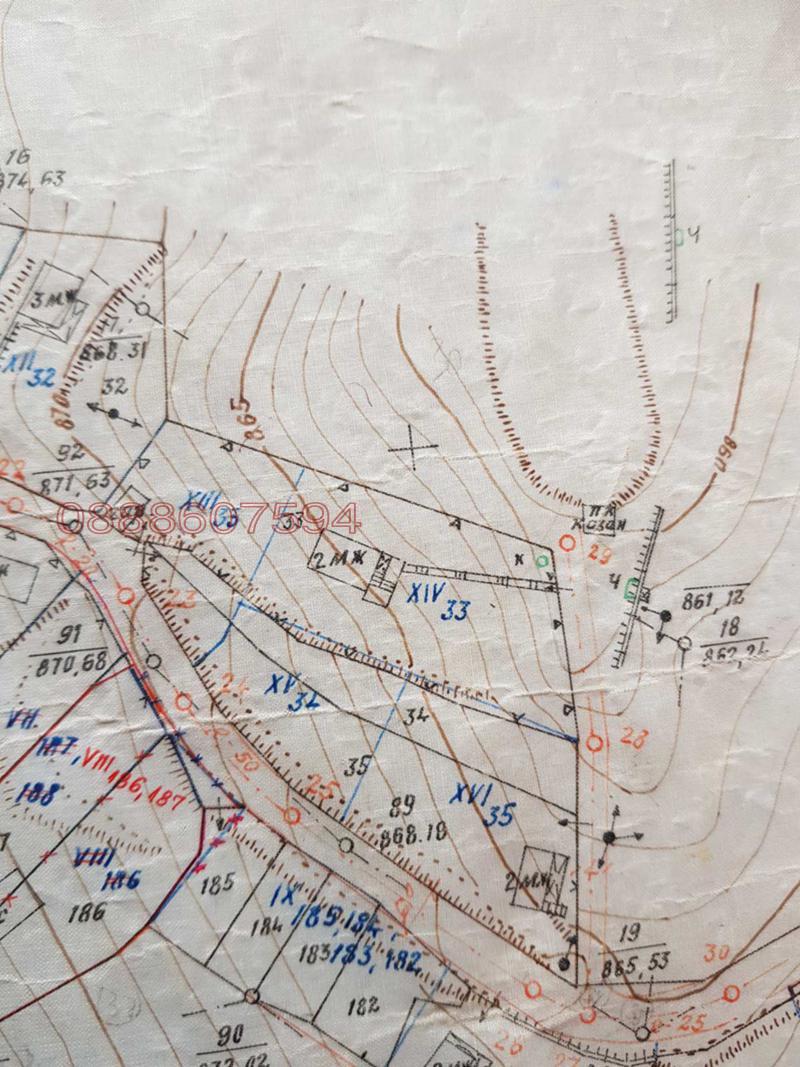 16
874,63
Ч
3 МЖ
868.31
XII
32
32
870
865
860
92
871,63
22
XIII
35
33
0888607594
ПК
казан
2 МЖ
К
29
XIV
33
Ч
861,12
18
23
91
870,68
24
XV
34
34
28
VII
187, VIII, 186, 187
188
R-50
25
35
89
868.18
XVI
35
VIII
186
186
185
2 МЖ
IX
185, 184,
184
183
183, 182
182
19
865,53
30
25
26
27
90